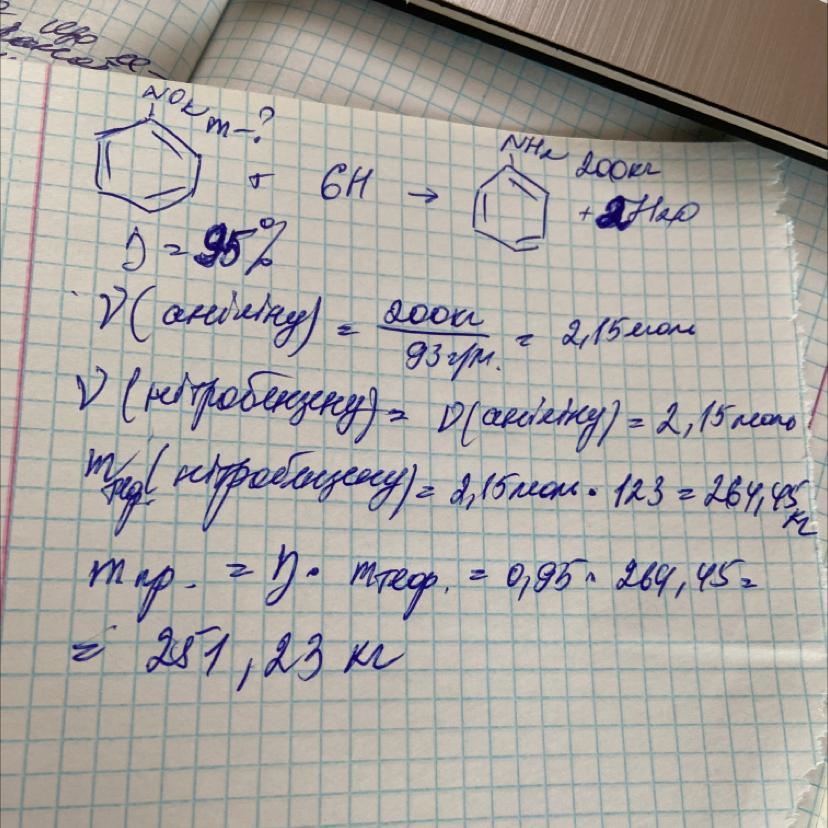 NO₂ m-?
+ 6H → NH₂ 200кг + 2H₂O
η = 95%
ν(аніліну) = 200кг / 93г/м. = 2,15моль
ν(нітробензену) = ν(аніліну) = 2,15моль
m теор.(нітробензену) = 2,15моль · 123 = 264,45 кг
m пр. = η · m теор. = 0,95 · 264,45 =
= 251,23 кг